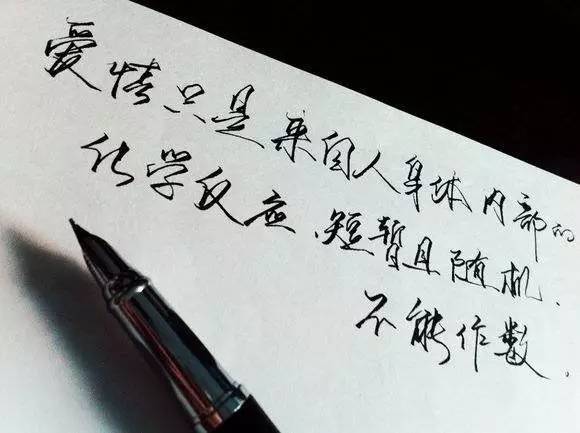 爱情只是来自人身体内部的
化学反应、短暂且随机.
不能作数.